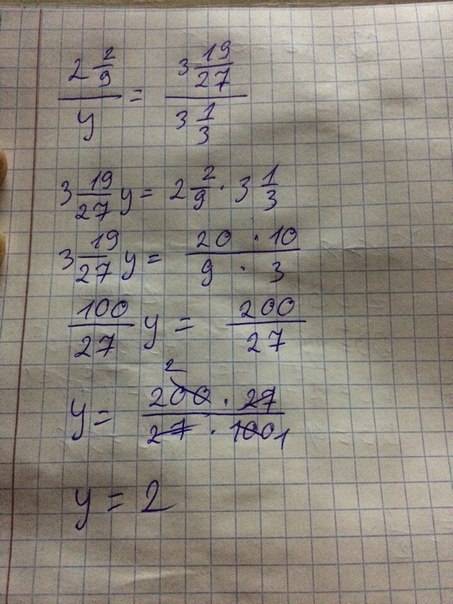 2 2/9 / y = 3 19/27 / 3 1/3
3 19/27 y = 2 2/9 · 3 1/3
3 19/27 y = 20 · 10 / 9 · 3
100/27 y = 200/27
y = 2 200 · 27 / 27 · 100 1
y = 2